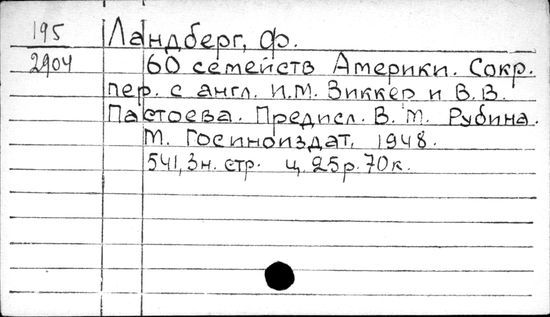 195 Ландберг, Ф.
2904 60 семейств Америки. Сокр.
пер. с англ. И.М. Виккер и В.В.
Пастоева. Предисл. В. М. Рубина.
М. Госиноиздат, 1948.
541,3н. стр. ц. 25р. 70к.